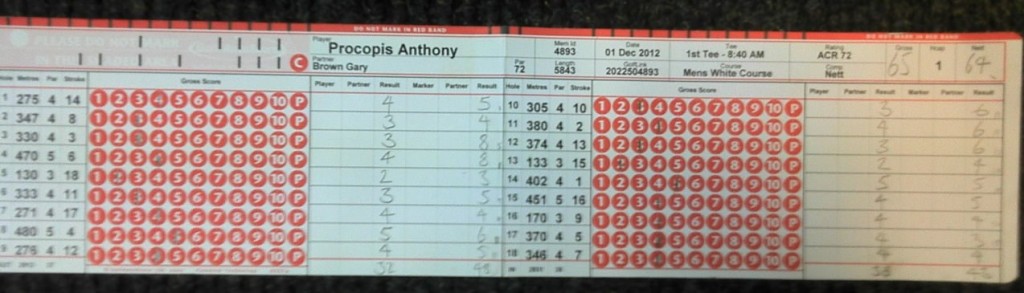 DO NOT MARK IN RED BAND
Player
Procopis Anthony
Partner
Brown Gary
Mem Id
4893
Par
72
Length
5843
Date
01 Dec 2012
GolfLink
2022504893
Tee
1st Tee - 8:40 AM
Course
Mens White Course
Rating
ACR 72
Comp
Nett
Gross
65
Hcap
1
Nett
64
Hole Metres Par Stroke Gross Score Player Partner Result Marker Partner Result
1 275 4 14 1 2 3 4 5 6 7 8 9 10 P 4 5
2 347 4 8 1 2 3 4 5 6 7 8 9 10 P 3 4
3 330 4 3 1 2 3 4 5 6 7 8 9 10 P 3 8
4 470 5 6 1 2 3 4 5 6 7 8 9 10 P 4 8
5 130 3 18 1 2 3 4 5 6 7 8 9 10 P 2 3
6 333 4 11 1 2 3 4 5 6 7 8 9 10 P 3 5
7 271 4 17 1 2 3 4 5 6 7 8 9 10 P 4 4
8 480 5 4 1 2 3 4 5 6 7 8 9 10 P 5 6
9 276 4 12 1 2 3 4 5 6 7 8 9 10 P 4 5
32
Hole Metres Par Stroke Gross Score Player Partner Result Marker Partner Result
10 305 4 10 1 2 3 4 5 6 7 8 9 10 P 3 6
11 380 4 2 1 2 3 4 5 6 7 8 9 10 P 4 6
12 374 4 13 1 2 3 4 5 6 7 8 9 10 P 3 6
13 133 3 15 1 2 3 4 5 6 7 8 9 10 P 2 4
14 402 4 1 1 2 3 4 5 6 7 8 9 10 P 5 5
15 451 5 16 1 2 3 4 5 6 7 8 9 10 P 4 5
16 170 3 9 1 2 3 4 5 6 7 8 9 10 P 4
17 370 4 5 1 2 3 4 5 6 7 8 9 10 P 4 3
18 346 4 7 1 2 3 4 5 6 7 8 9 10 P 4 4